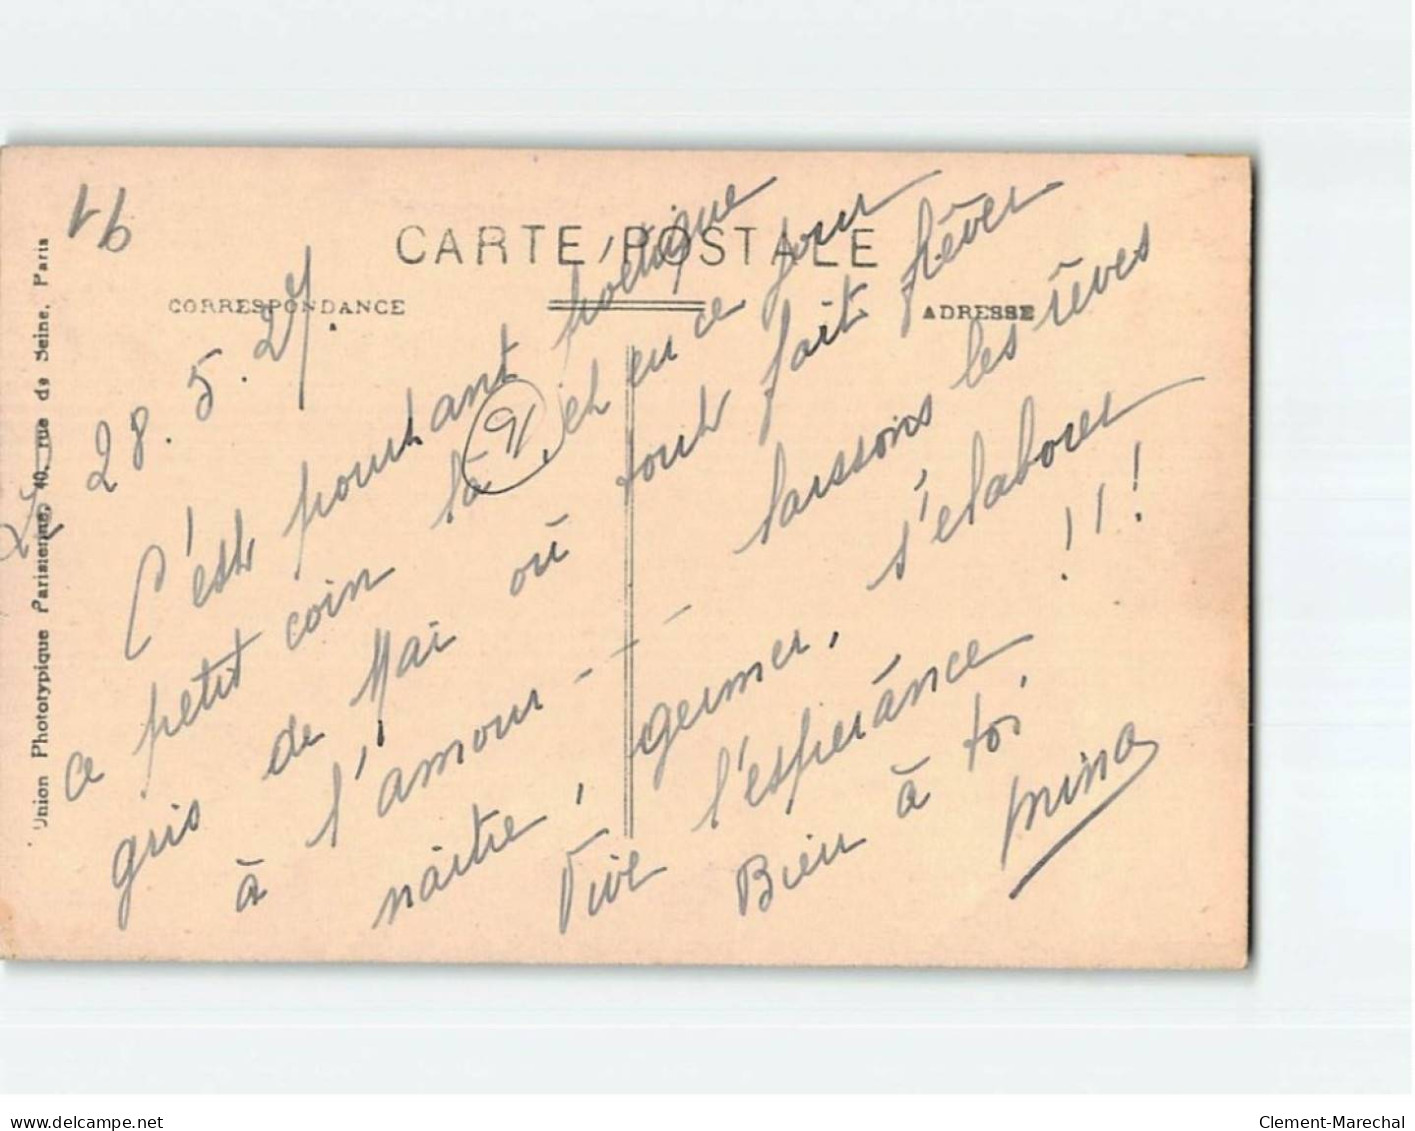 91
CARTE POSTALE
CORRESPONDANCE
ADRESSE
Union Phototypique Parisienne, 40, rue de Seine, Paris
28.5.27.
C'est pourtant poétique
ce petit coin là, et en ce jour
91
gris de Mai où tout fait rêver
à l'amour - - - laissons les rêves
naître, germer, s'élaborer
Vive l'espérance !!!
Bien à toi
Mina
delcampe.net
Clement-Marechal